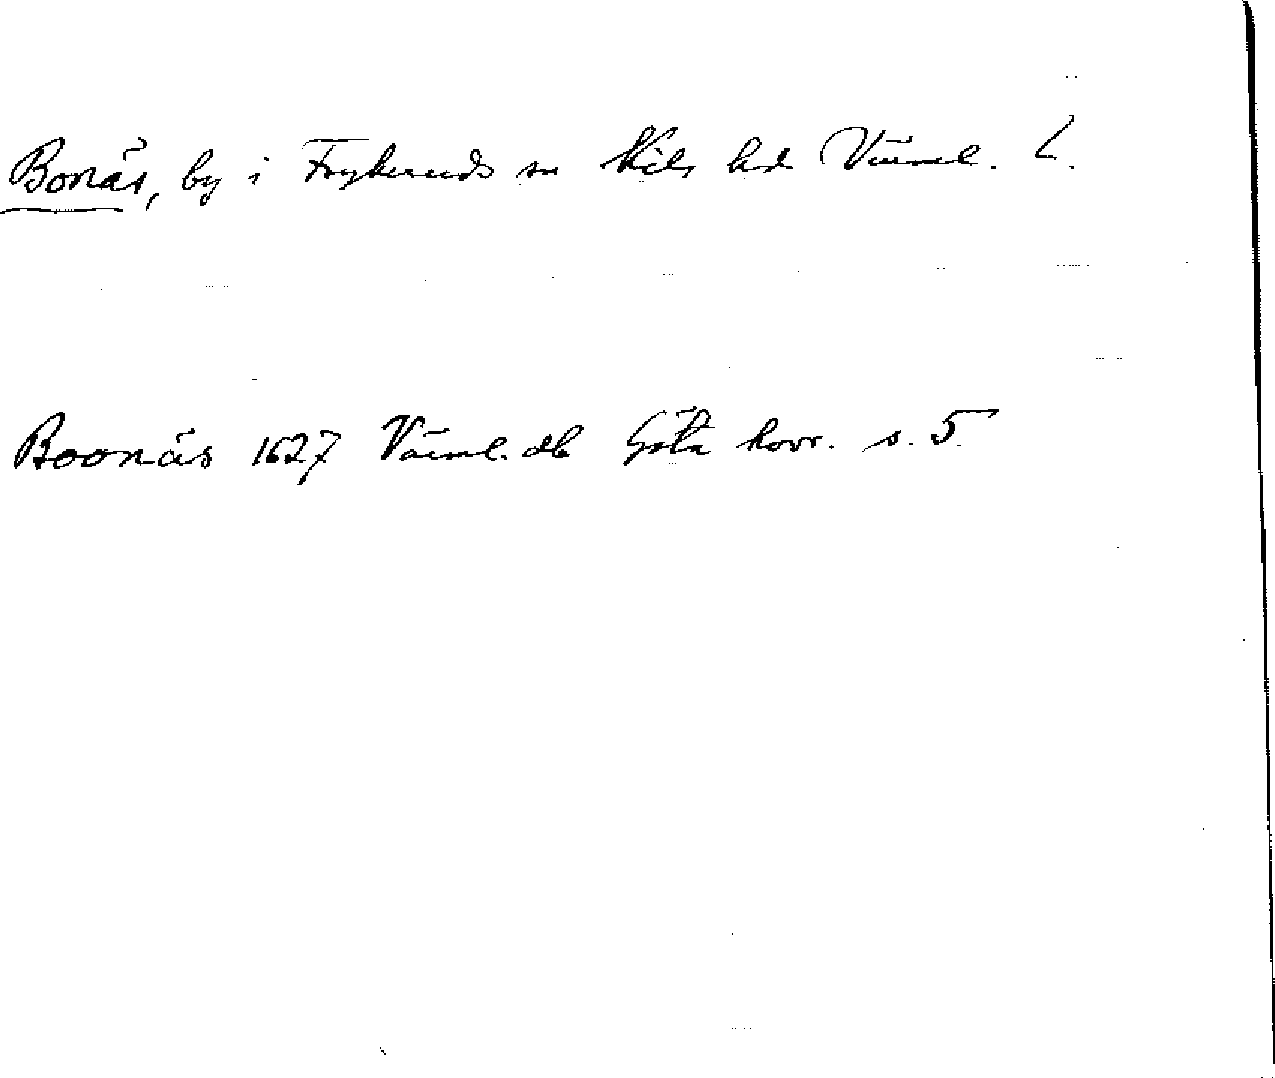 Bonäs, by i Frykeruds sn Kils hd Värml. L.
Boonäs 1627 Värml. db Göta hovr. s. 5